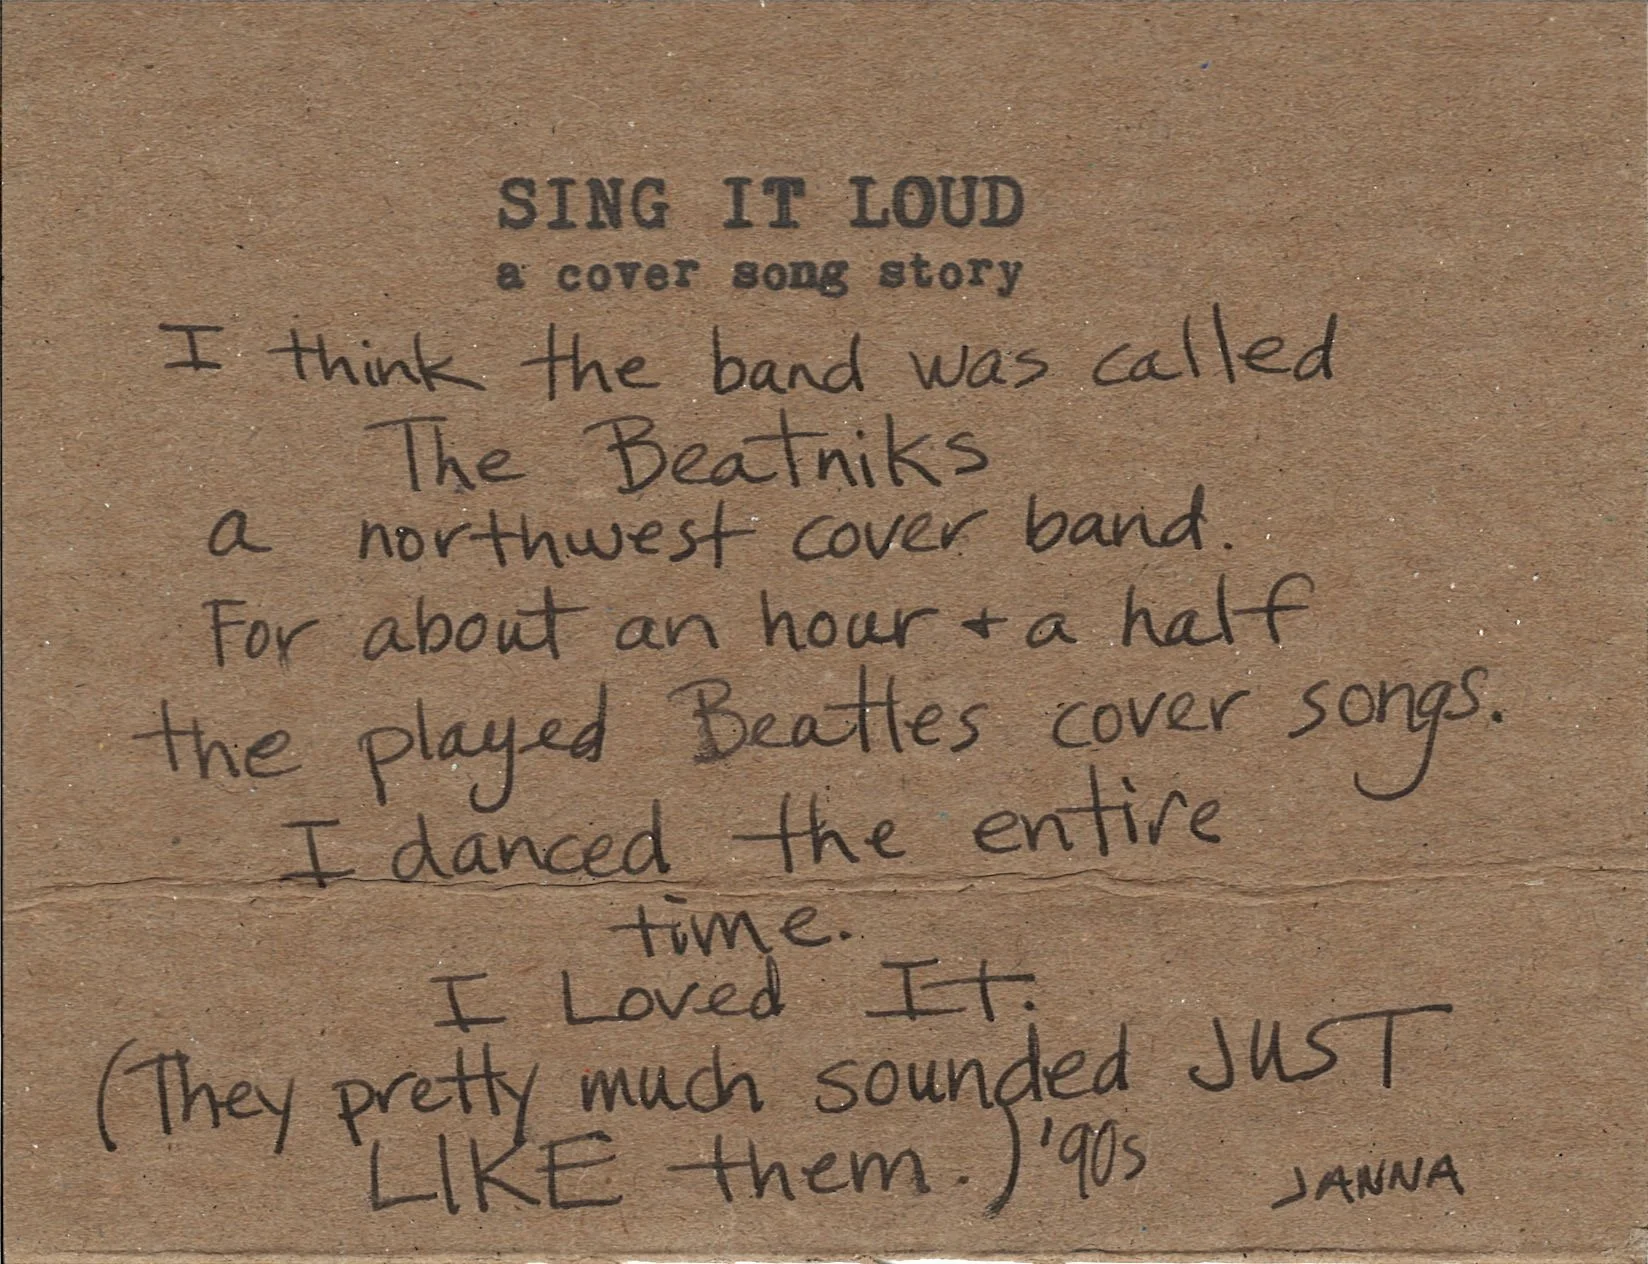 SING IT LOUD
a cover song story
I think the band was called
The Beatniks
a northwest cover band.
For about an hour + a half
the played Beatles cover songs.
I danced the entire
time.
I Loved It.
(They pretty much sounded JUST
LIKE them.) '90s JANNA